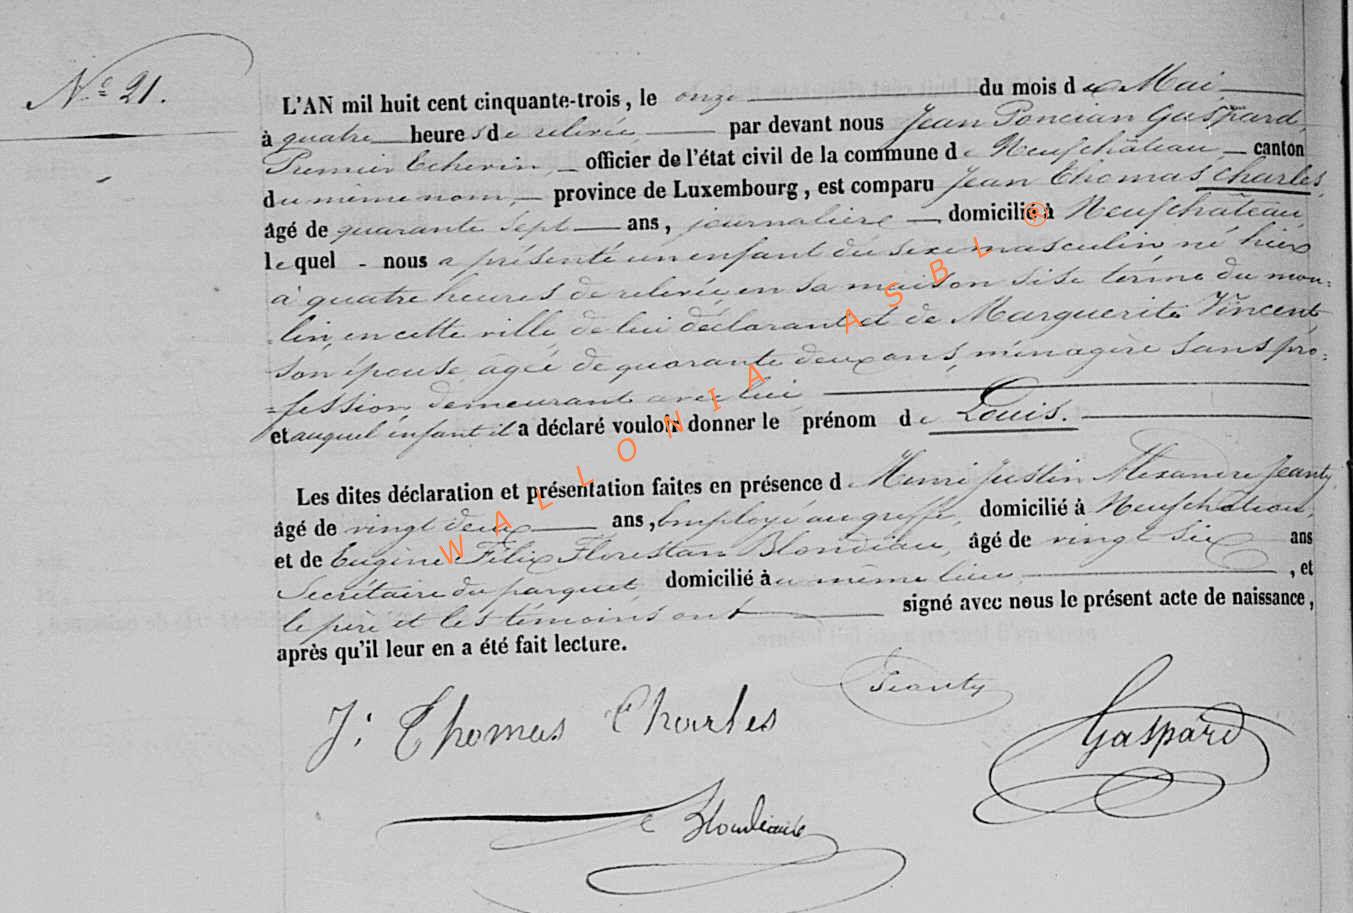 N° 21.
L'AN mil huit cent cinquante-trois, le onze du mois de Mai
à quatre heures de relevée par devant nous Jean Poncian Gaspard,
Premier Echevin, officier de l'état civil de la commune de Neufchâteau, canton
du même nom, province de Luxembourg, est comparu Jean Thomas Charles,
âgé de quarante sept ans, journalière domicilié à Neufchâteau
lequel - nous a présenté un enfant du sexe masculin, né hier
à quatre heures de relevée, en sa maison sise terme du mou-
lin, en cette ville, de lui déclarant et de Marguerite Vincent
son épouse, âgée de quarante deux ans, ménagère sans pro-
fession, demeurant avec lui
et auquel enfant il a déclaré vouloir donner le prénom de Louis.
Les dites déclaration et présentation faites en présence de Henri Justin Alexandre Jeanty
âgé de vingt deux ans, Employé au greffe, domicilié à Neufchâteau,
et de Eugène Félix Florestan Blondiau, âgé de vingt six ans
Secrétaire du parquet, domicilié au même lieu, et
le père et les témoins ont signé avec nous le présent acte de naissance,
après qu'il leur en a été fait lecture.
Jeanty
J: Thomas Charles
Gaspard
Blondiau
WALLONIA ASBL ®